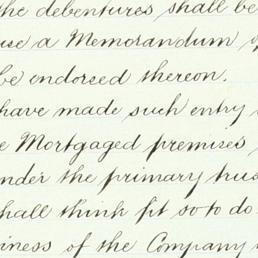 the debentures shall be
use a Memorandum
be endorsed thereon.
have made such entry
Mortgaged premises
nder the primary trus
hall think fit so to do
iness of the Company